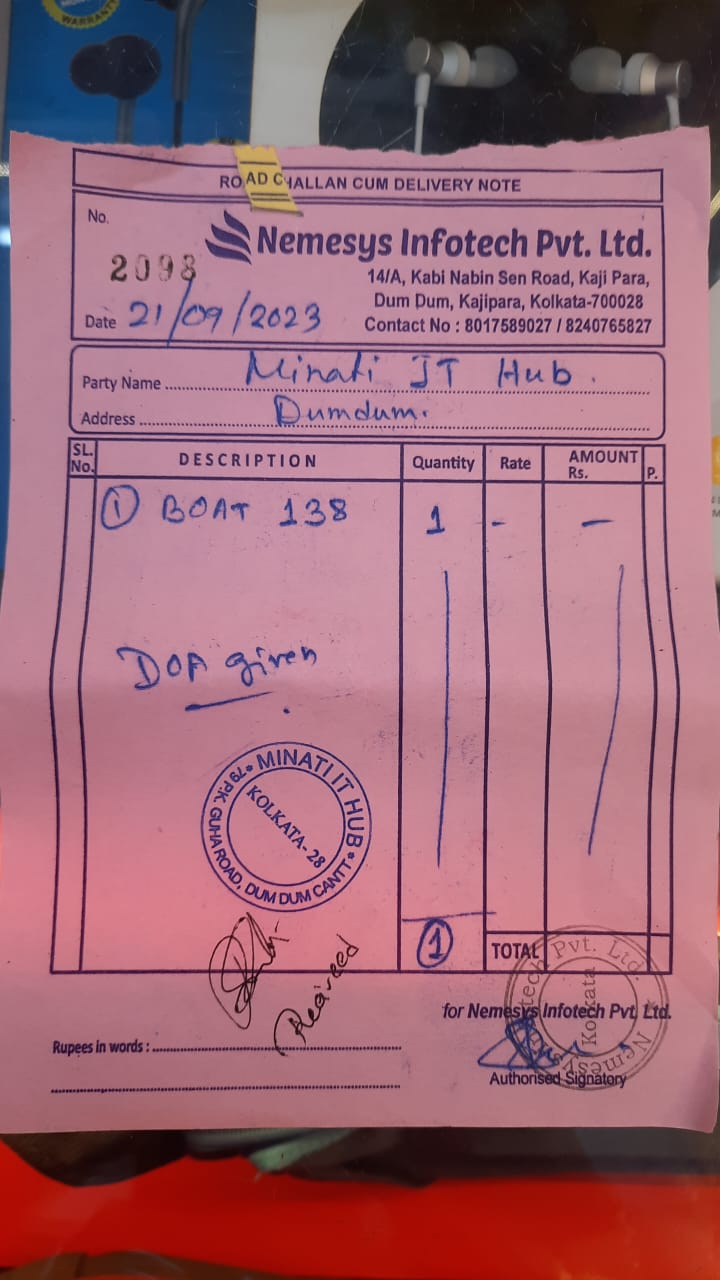 WARRANTY
ROAD CHALLAN CUM DELIVERY NOTE
No.
2098
Nemesys Infotech Pvt. Ltd.
14/A, Kabi Nabin Sen Road, Kaji Para,
Dum Dum, Kajipara, Kolkata-700028
Contact No : 8017589027 / 8240765827
Date 21/09/2023
Party Name Minati IT Hub.
Address Dumdum.
SL. No. DESCRIPTION Quantity Rate AMOUNT Rs. P.
① BOAT 138 1 - -
DOA given
MINATI IT HUB
79 P.K. GUHA ROAD, DUM DUM CANTT
KOLKATA-28
1 TOTAL
for Nemesys Infotech Pvt. Ltd.
Nemesys Infotech Pvt. Ltd.
Kolkata
Rupees in words :
Authorised Signatory